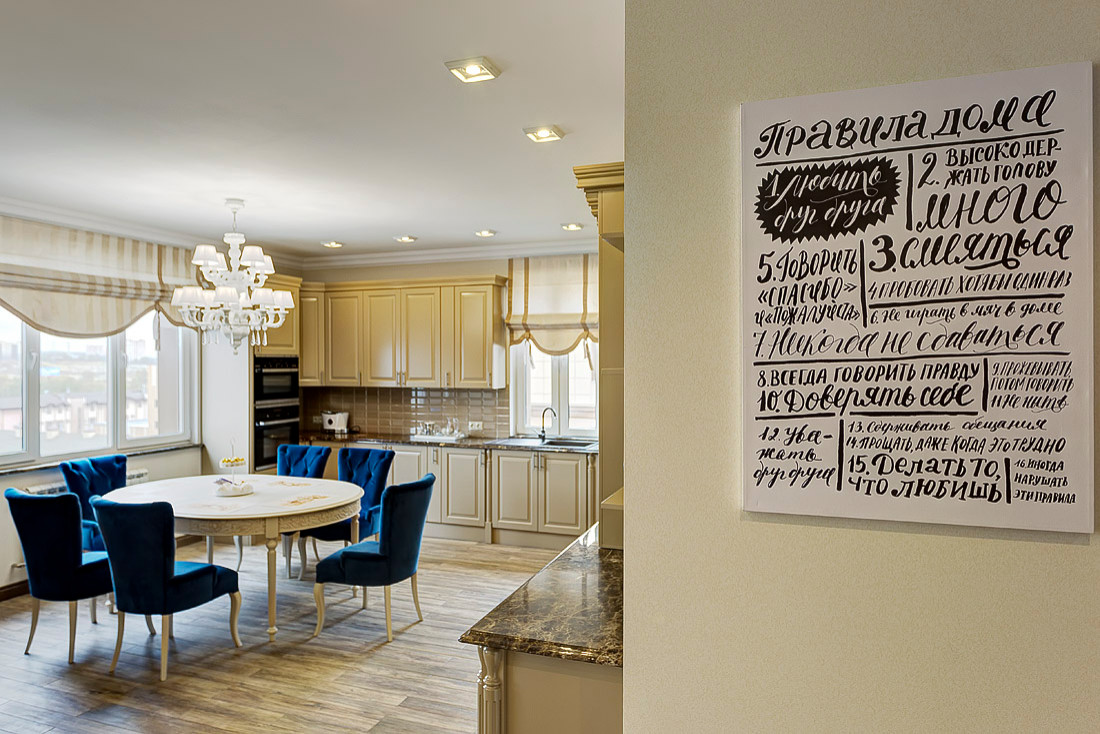 Правила дома
1. Любить
друг друга
2. ВЫСОКО ДЕР-
ЖАТЬ ГОЛОВУ
много
3. смеяться
4. ПРОБОВАТЬ ХОТЯ БЫ ОДИН РАЗ
5. ГОВОРИТЬ
«СПАСИБО»
и «ПОЖАЛУЙСТА»
6. Не играть в мяч в доме
7. Никогда не сдаваться
8. ВСЕГДА ГОВОРИТЬ ПРАВДУ
9. ПРОЖЕВЫВАТЬ
ПОТОМ ГОВОРИТЬ
10. Доверять себе
11. Не ныть
12. Ува-
жать
друг друга
13. Сдерживать обещания
14. ПРОЩАТЬ, ДАЖЕ КОГДА ЭТО ТРУДНО
15. Делать то,
что любишь
16. ИНОГДА
НАРУШАТЬ
ЭТИ ПРАВИЛА